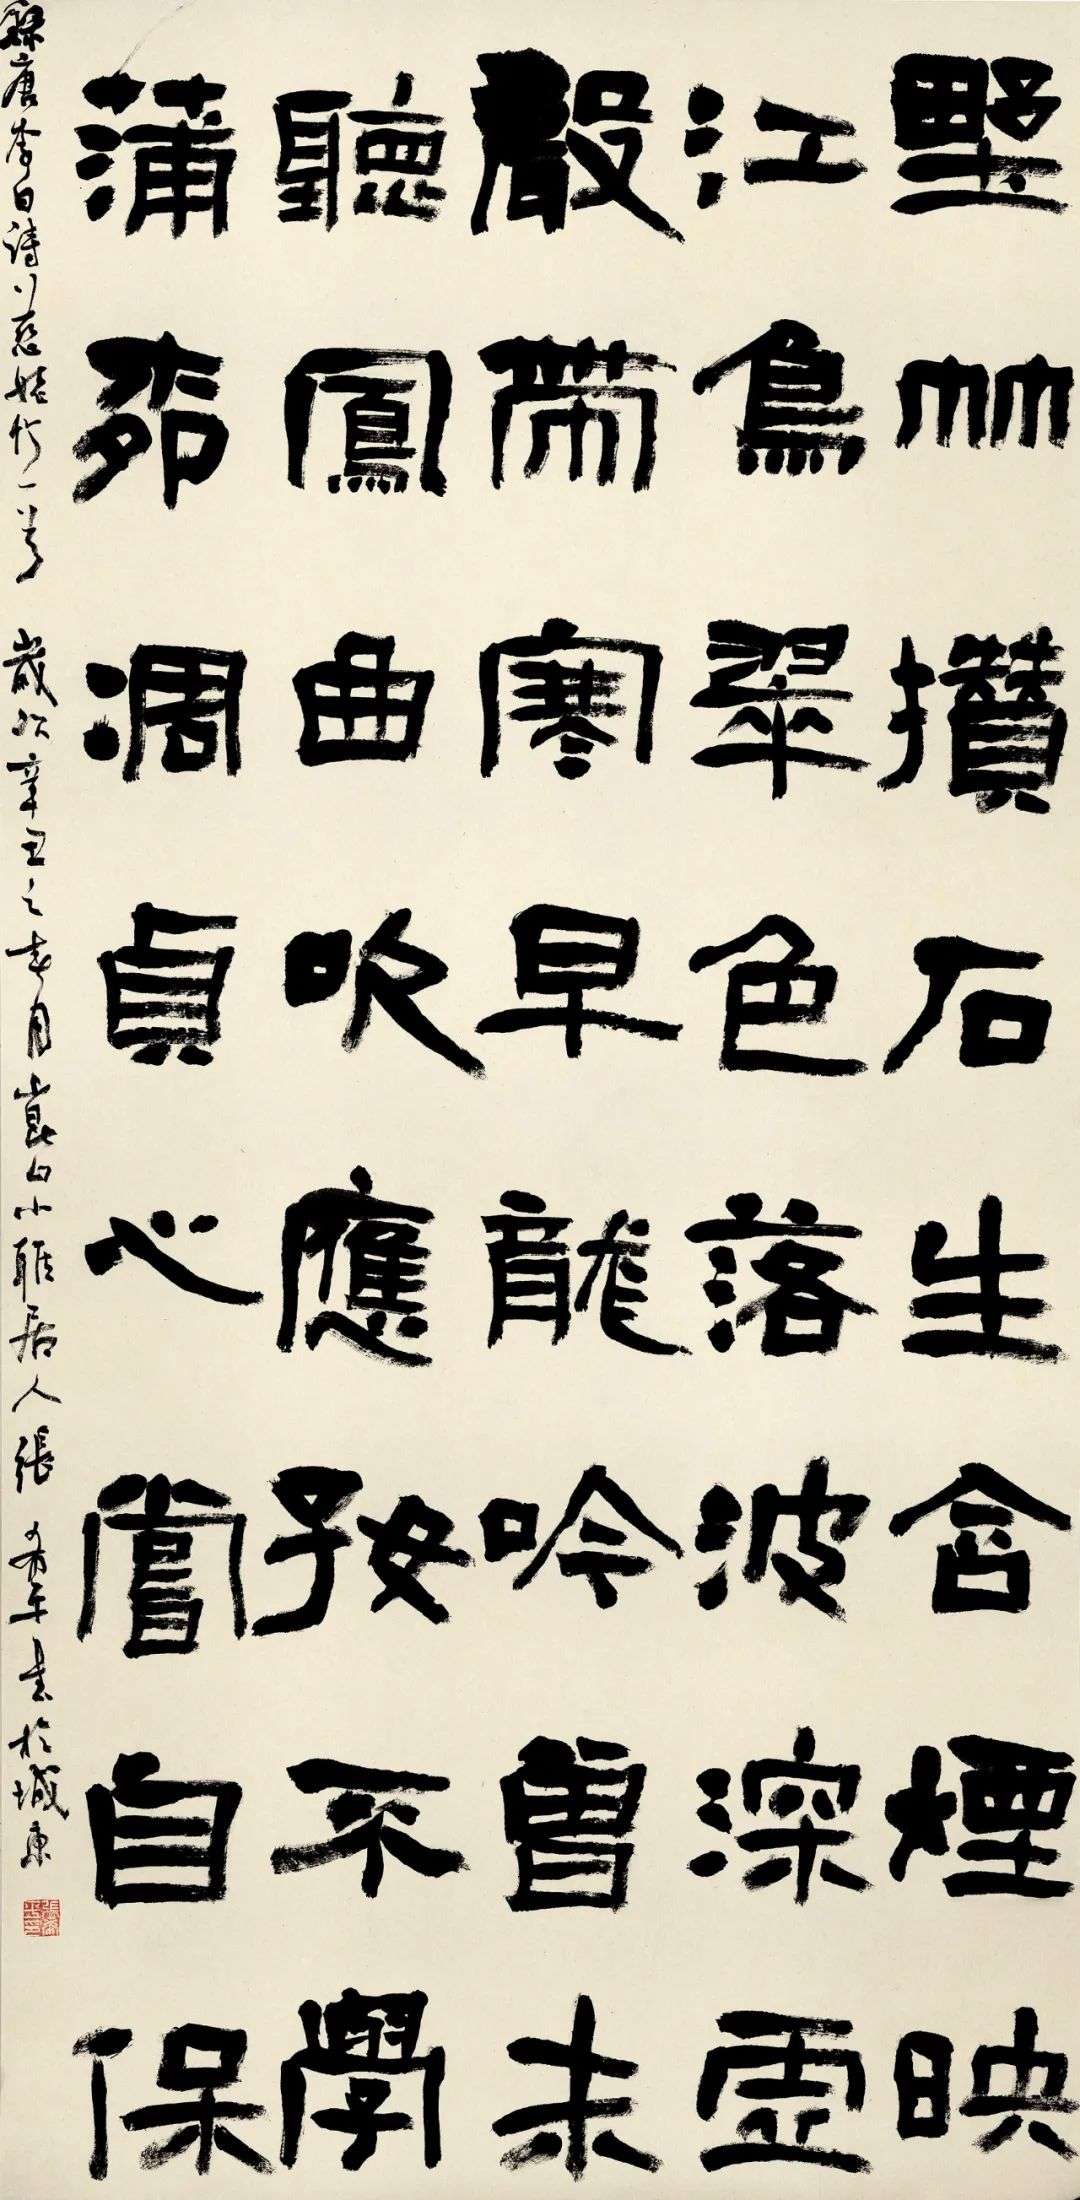 野竹攢石生含煙映
江島翠色落波深虛
聲帶寒早龍吟曾未
聽鳳曲吹應好不學
蒲柳凋貞心嘗自保
錄唐李白詩慈姥竹一首 歲次辛丑之春月小居人張希平書於城東